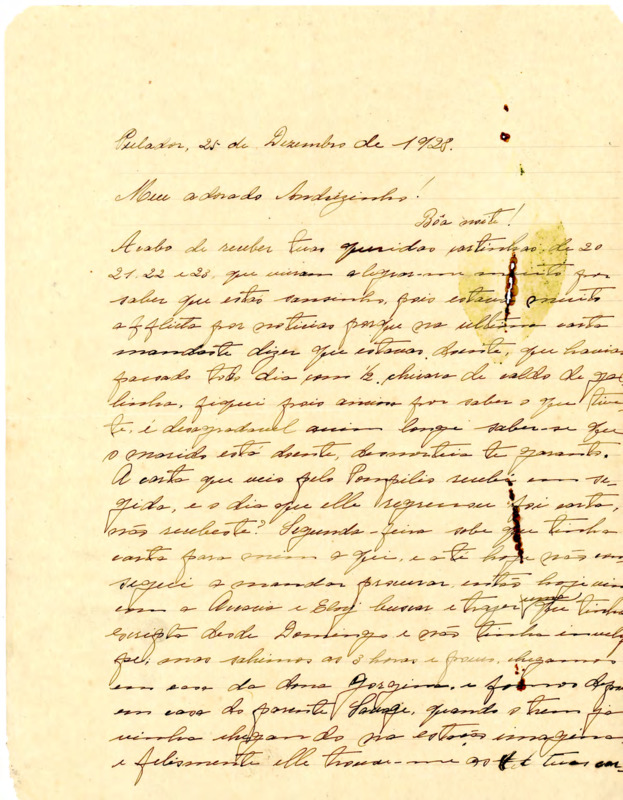 Pelador, 25 de Dezembro de 1928.
Meu adorado Andrézinho!
Bôa noite!
Acabo de receber tuas queridas cartinhas de 20
21, 22 e 23, que vieram alegrar-me muito por
saber que estás sansinho, pois estava muito
afflicta por noticias porque na ultima carta
mandaste dizer que estavas doente, que havias
passado todo dia com ½ chicara de caldo de gal
linha, fiquei pois ansiosa por saber o que tives
te, é desagradavel assim longe saber-se que
o marido está doente, desnorteia te garanto.
A carta que veio pelo Pompilio recebi em se
gida, e o dia que elle regressou foi carta,
não recebeste? Segunda-feira sobe que tinha
carta para mim aqui, e até hoje não con
segui a mandar procurar, então hoje vim
com a Anaria e Eloy buscar e trazer uma que tinha
escripta desde Domingo e não tinha invelo
pe; mas sahimos as 3 horas e pouco, chegamos
em casa da dona Gorgina, e fomos depois
em casa do parente Savage, quando o trem ja
vinha chegando na estação imagina
e felismente elle trouxe-me as tuas car-